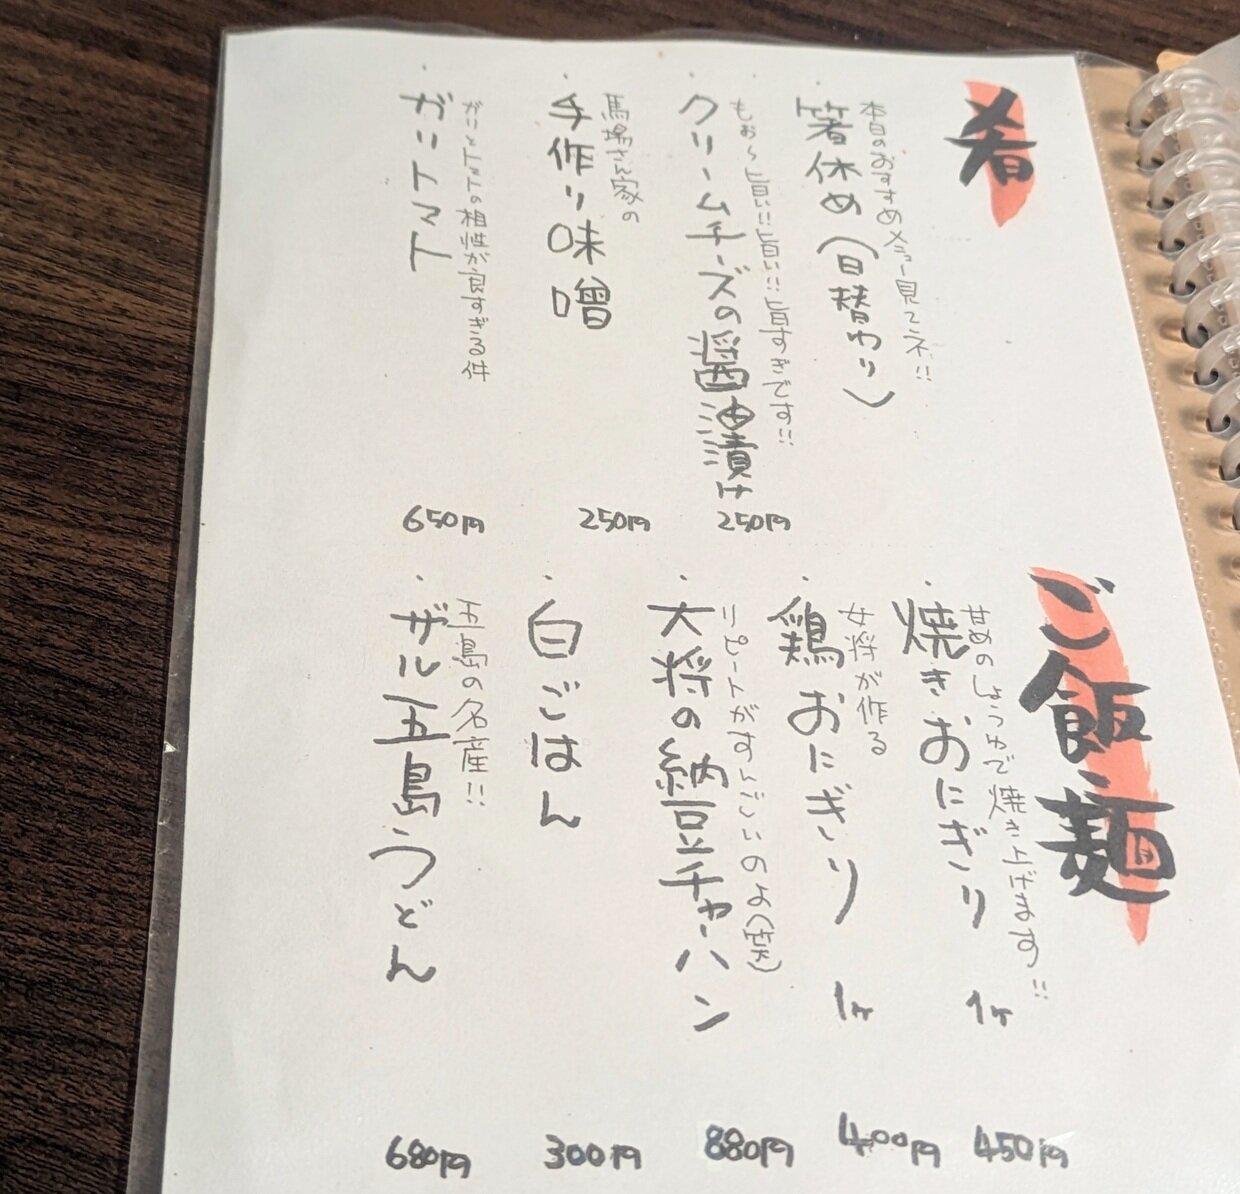 肴
本日のおすすめメニュー見てネ!!
・箸休め(日替わり)
もぉ〜旨い!!旨い!!旨すぎです!!
・クリームチーズの醤油漬け
250円
馬場さん家の
・手作り味噌
250円
ガリとトマトの相性が良すぎる件
・ガリトマト
650円
ご飯・麺
甘めのしょうゆで焼き上げます!!
・焼きおにぎり 1ヶ
450円
女将が作る
・鶏おにぎり 1ヶ
400円
リピートがすんごいのよ(笑)
・大将の納豆チャーハン
880円
・白ごはん
300円
五島の名産!!
・ザル五島うどん
680円